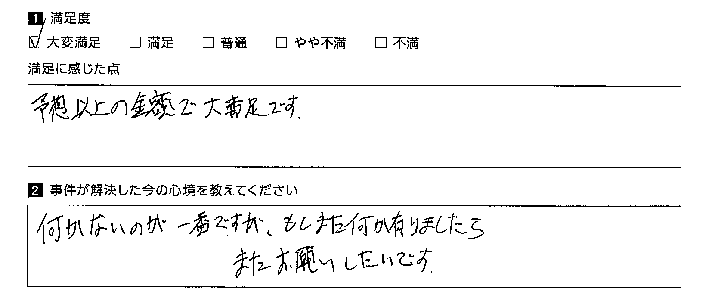 1 満足度
☑ 大変満足 □ 満足 □ 普通 □ やや不満 □ 不満
満足に感じた点
予想以上の金額で大満足です。
2 事件が解決した今の心境を教えてください
何かないのが一番ですが、もしまた何か有りましたら
またお願いしたいです。